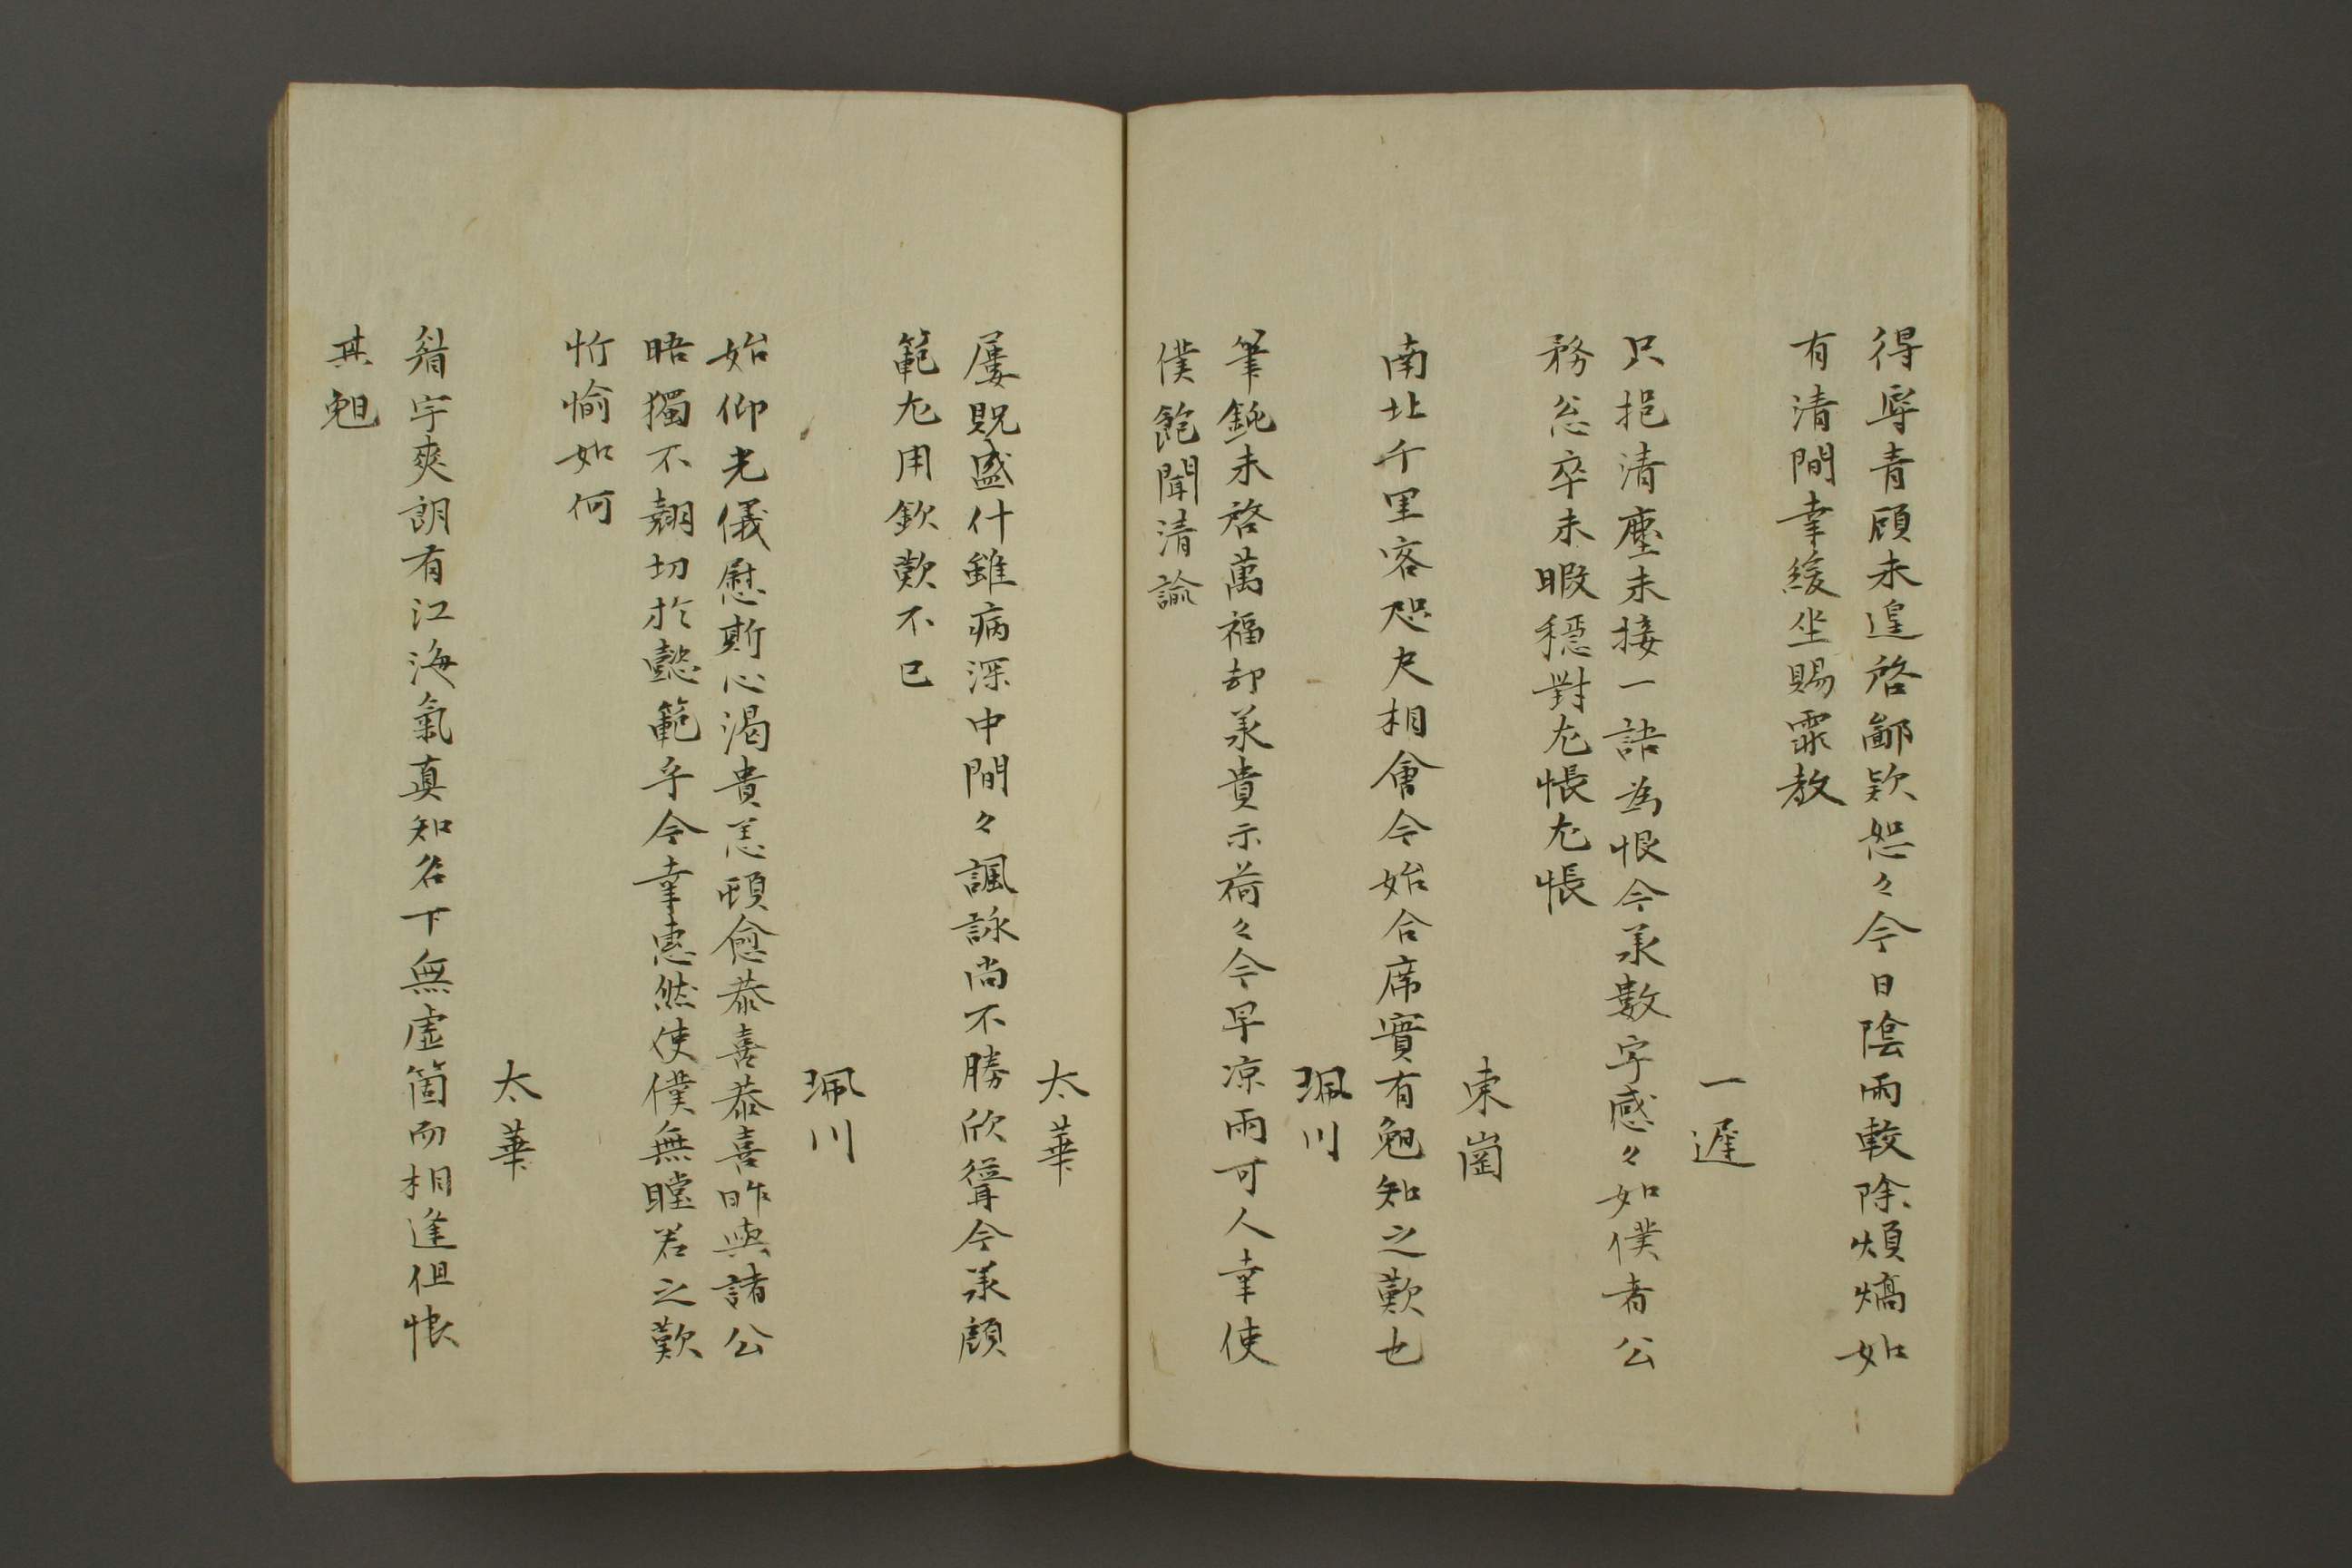 得辱青顧未遑啓鄙欵恕々今日陰雨較除煩熇如
有清間幸緩坐賜霏教
一遲
只挹清塵未接一語為恨今承數字感々如僕者公
務怱卒未暇穩對尤悵尤悵
東崗
南北千里客咫尺相會今始合席實有勉知之歎也
珮川
筆鈍未啓萬福却承貴示荷々今早凉雨可人幸使
僕飽聞清諭
太華
屢貺盛什雖病深中間々諷詠尚不勝欣聳今承顔
範尤用欽歎不已
珮川
始仰光儀慰斯心渴貴恙頓愈恭喜恭喜昨與諸公
晤獨不翹切於懿範乎今幸惠然使僕無瞠若之歎
忻愉如何
太華
眉宇爽朗有江海氣真知名下無虛箇而相逢但悵
其勉